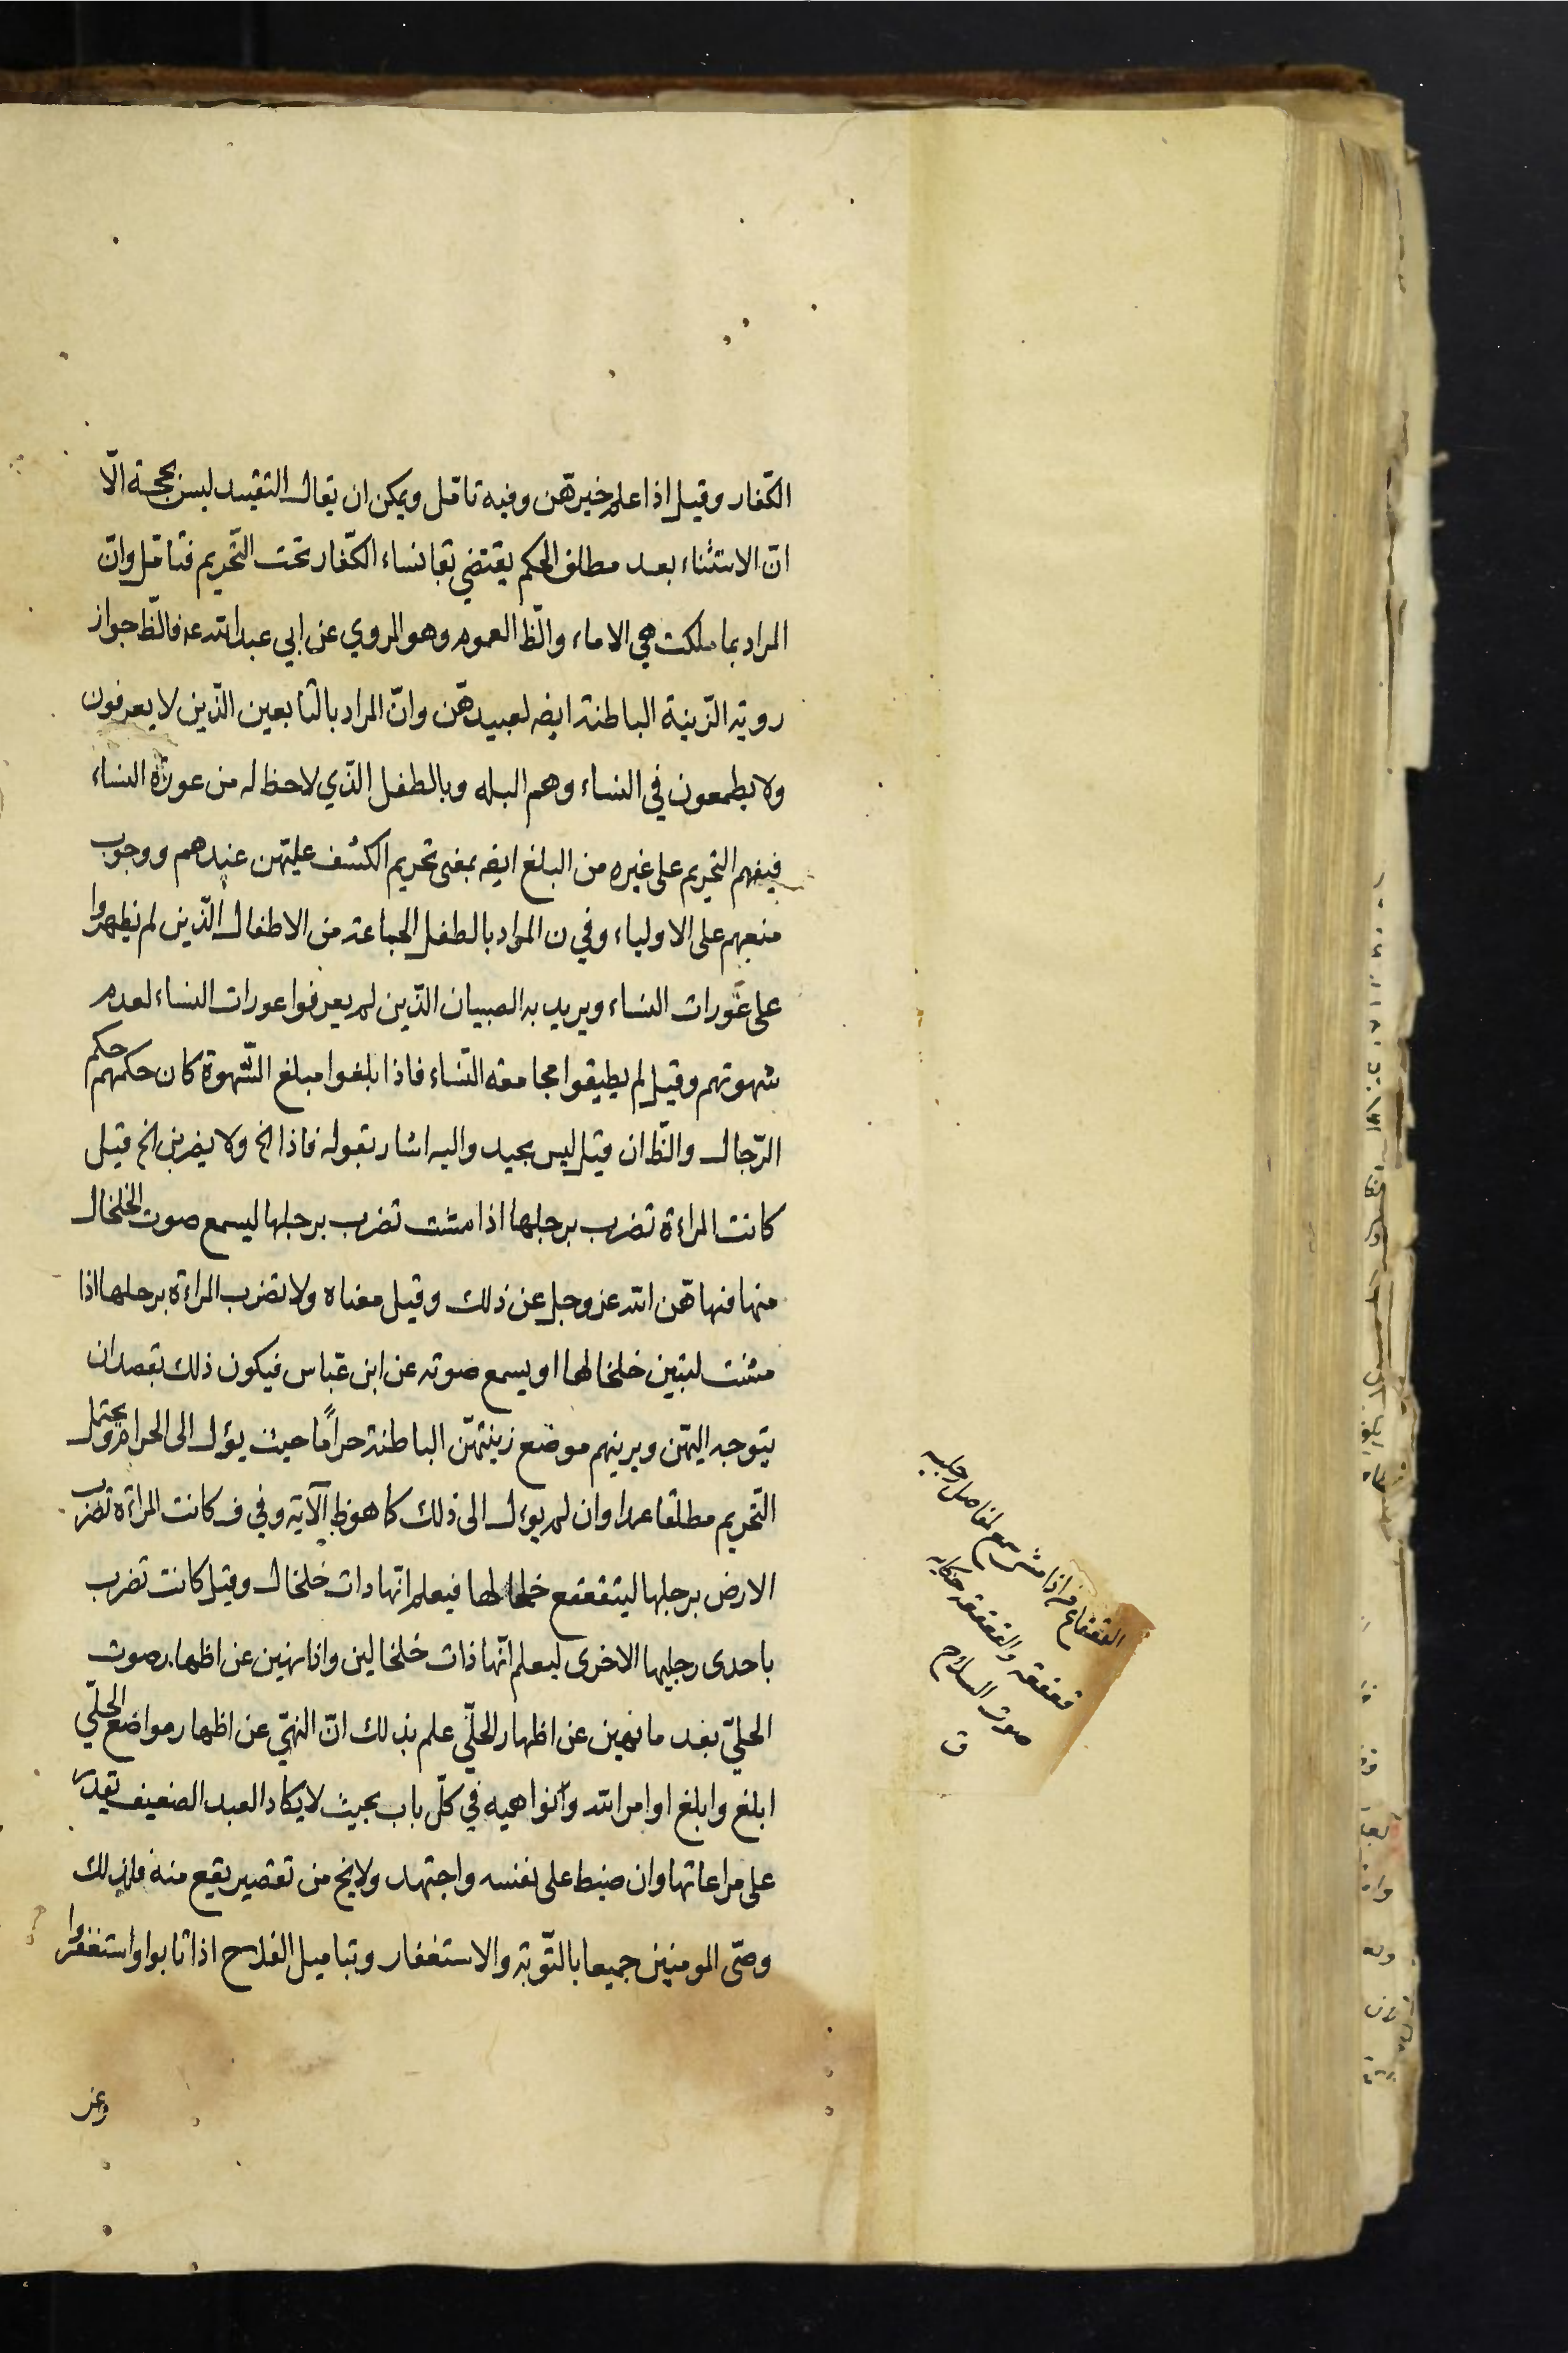 الكفّار وقيل اذا علم خيرهنّ وفيه تامّل ويمكن ان يقال التقييد ليس بحجة الّا
انّ الاستثناء بعد مطلق الحكم يقتضي بقا نساء الكفّار تحت التّحريم فتامّل وانّ
المراد بما ملكت هي الاماء والّظ العموم وهو المروي عن ابي عبد الله ع فالّظ جواز
روية الزّينة الباطنة ايضه لعبيدهنّ وانّ المراد بالتابعين الّذين لا يعرفون
ولا يطمعون في النساء وهم البله وبالطفل الّذي لاحظ له من عورة النساء
فيفهم التحريم على غيره من البلغ ايضه بمعنى تحريم الكشف عليهن عندهم ووجوب
منعهم على الاولياء وفي ن المراد بالطفل الجماعة من الاطفال الّذين لم يظهروا
على عَورات النساء ويريد به الصبيان الّذين لم يعرفوا عورات النساء لعدم
شهوتهم وقيل لم يطيقوا مجامعة النّساء فاذا بلغوا مبلغ الشّهوة كان حكمهم حكم
الرّجال والّظ ان قيل ليس بجيد واليه اشار بقوله فاذا الخ ولا يضربن الخ قيل
كانت المراءة تضرب برجلها اذا مشت تضرب برجلها ليسمع صوت الخلخال
منها فنهاهنّ الله عز وجل عن ذلك وقيل معناه ولا تضرب المراءة برجلها اذا
مشت لتبين خلخالها او يسمع صوته عن ابن عبّاس فيكون ذلك بقصد ان
يتوجه اليهن ويرينهم موضع زينتهنّ الباطنة حرامًا حيث يؤل الى الحرام ويحتمل
التّحريم مطلقا عمدا وان لم يؤل الى ذلك كما هو ظ الآية وفي ف كانت المراءة تضرب
الارض برجلها ليتقعقع خلخالها فيعلم انّها ذات خلخال وقيل كانت تضرب
باحدى رجليها الاخرى ليعلم انّها ذات خلخالين واذا نهين عن اظهار صوت
الحليّ بعد ما نهين عن اظهار الحلّي علم بذلك انّ النهيّ عن اظهار مواضع الحلّي
ابلغ وابلغ اوامر الله ونواهيه في كلّ باب بحيث لا يكاد العبد الضعيف يقدر
على مراعاتها وان ضبط على نفسه واجتهد ولا يخ من تقصير يقع منه فلذلك
وصّى المومنين جميعا بالتّوبة والاستغفار وبتاميل الفلاح اذا تابوا واستغفروا
وعن
القعقاع من اذا مشى سمع لمفاصل رجليه
قعقعة والقعقعة حكاية
صوت السلاح
ق